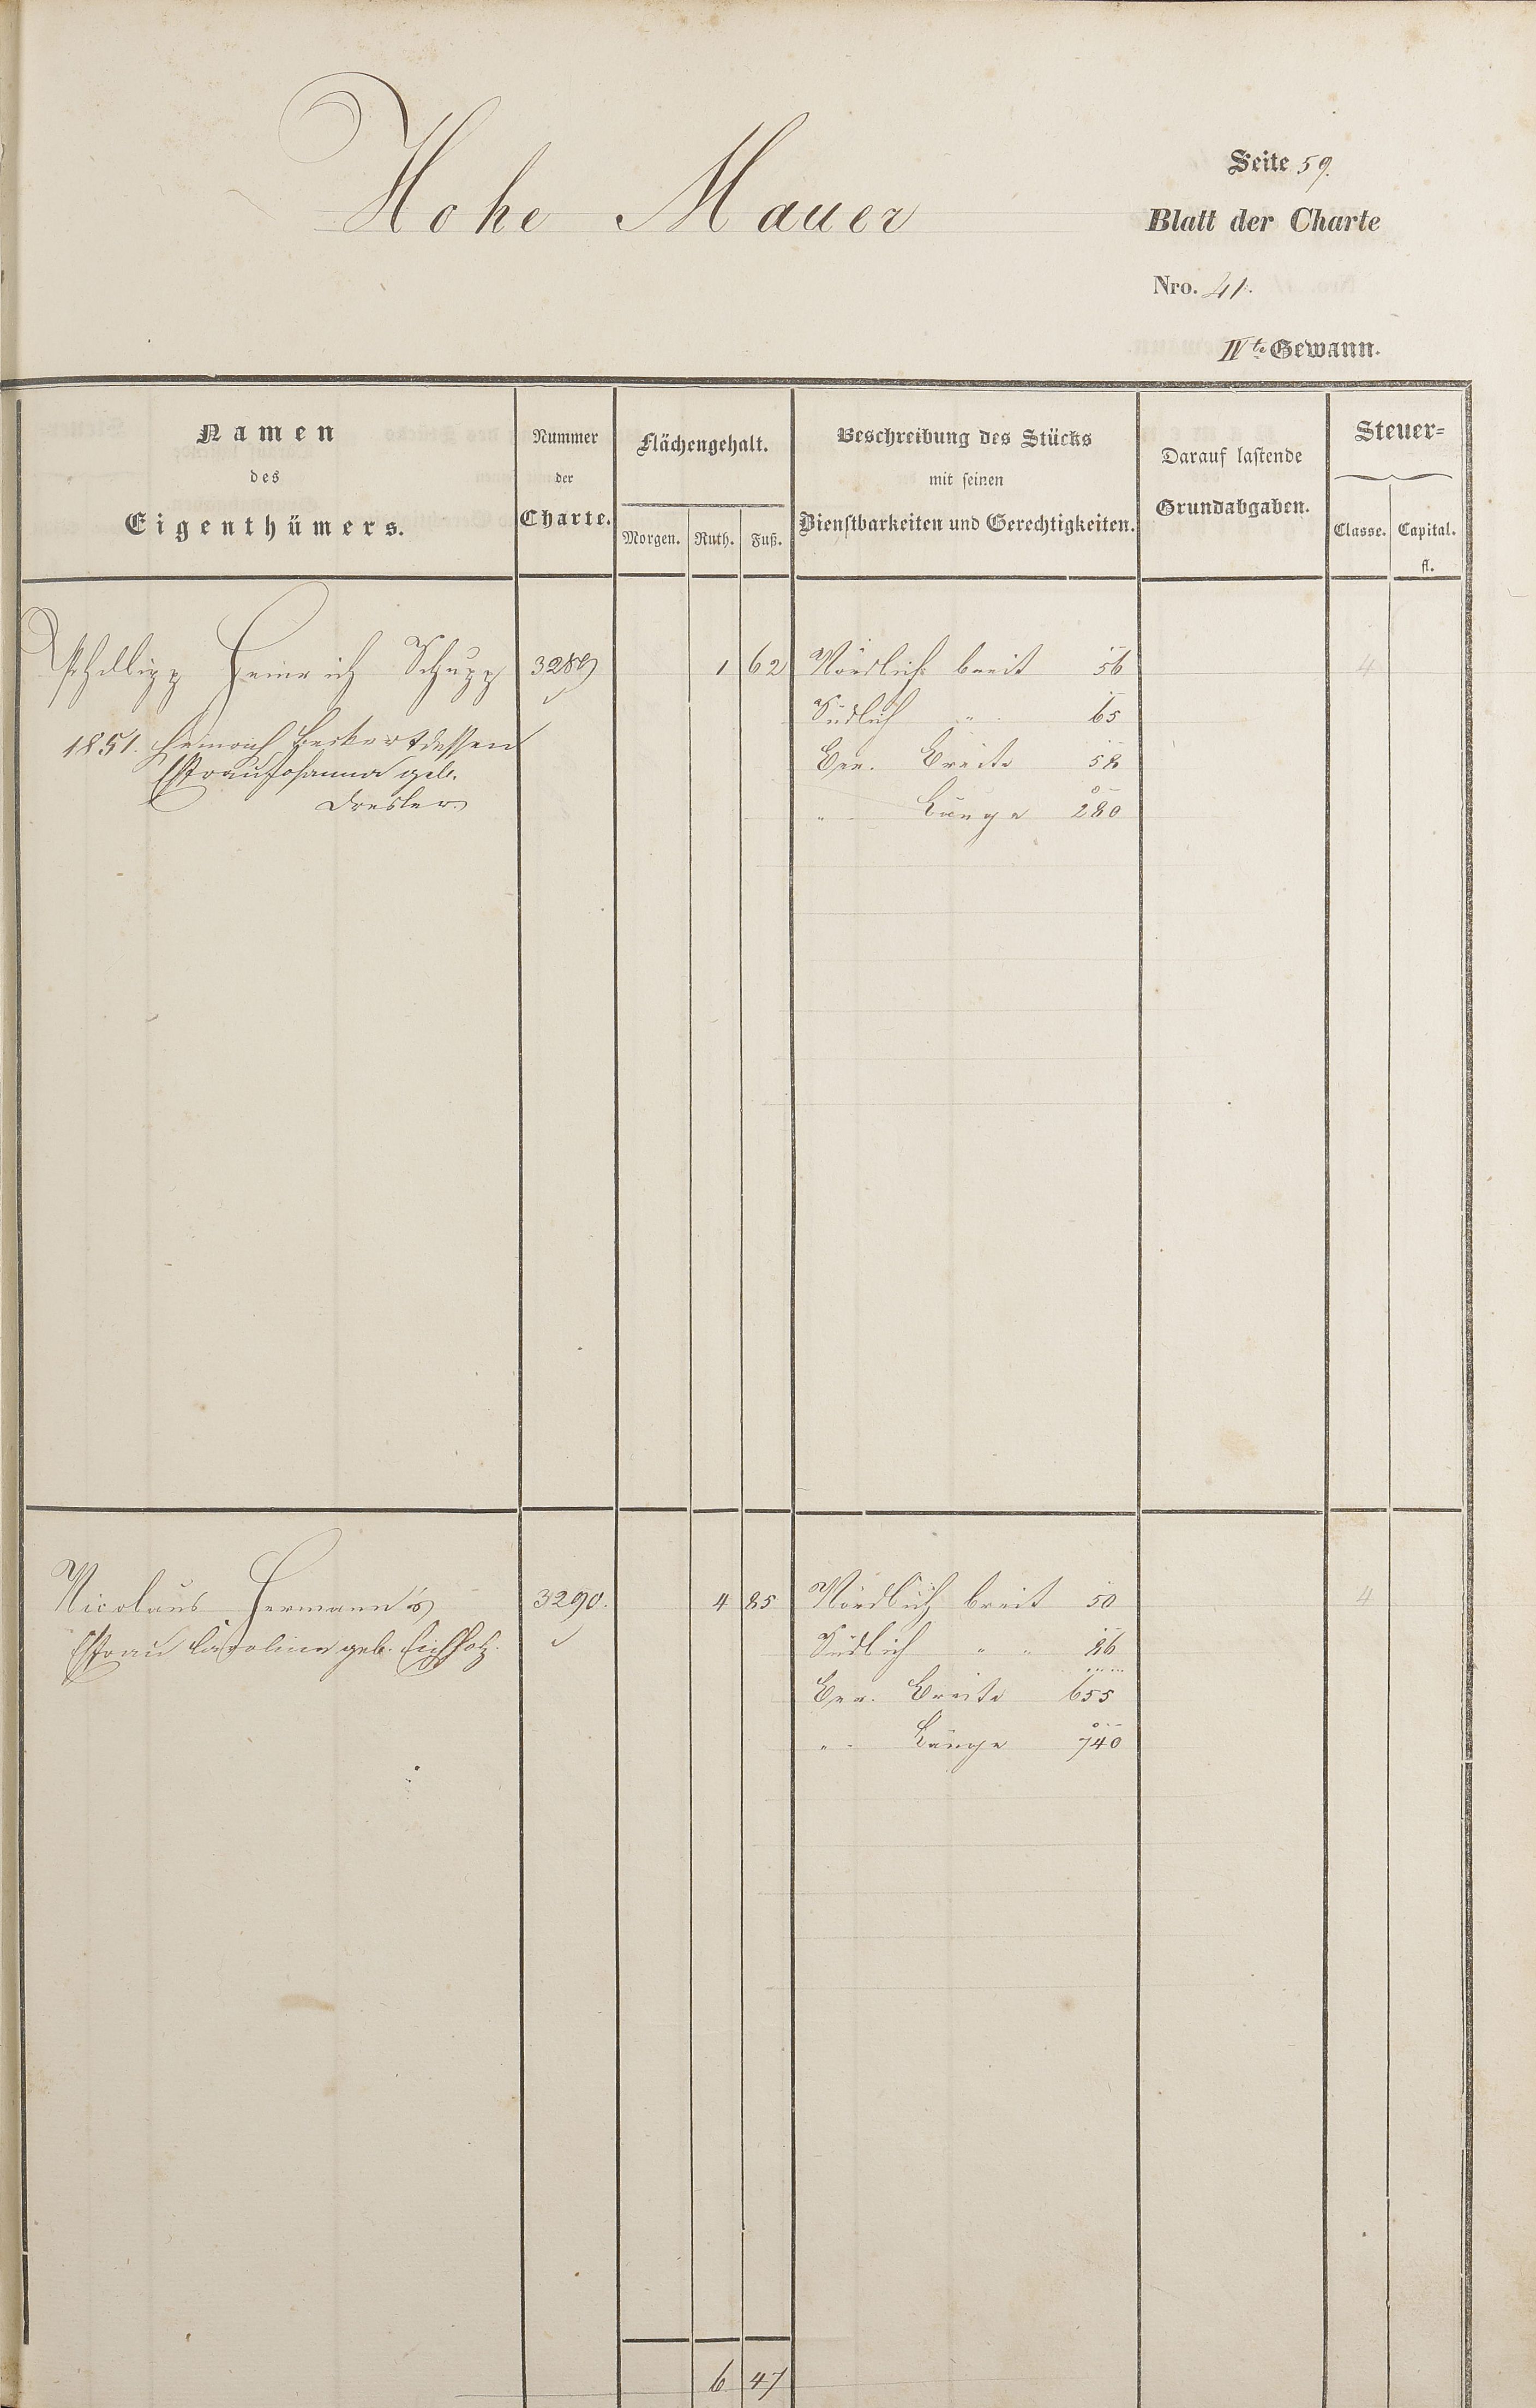 Hohe Mauer
Seite 59.
Blatt der Charte
Nro. 41.
IVte Gewann.
Namen
des
Eigenthümers.
Nummer
der
Charte.
Flächengehalt.
Morgen. Ruth. Fuß.
Beschreibung des Stücks
mit seinen
Dienstbarkeiten und Gerechtigkeiten.
Darauf lastende
Grundabgaben.
Steuer-
Classe. Capital.
fl.
Philipp Heinrich Schupp 3289 1 62 Nördlich breit 56 4
Südlich " 65
1851. Heinrich Beckert dessen
Ber. Breite 58
Ehfrau Johanna geb.
Dresler
" Länge 280
Nicolaus Hermann's 3290. 4 85 Nördlich breit 50 4
Ehfrau Caroline geb. Eichholz.
Südlich " " 86
Ber. Breite 655
" Länge 740
6 47